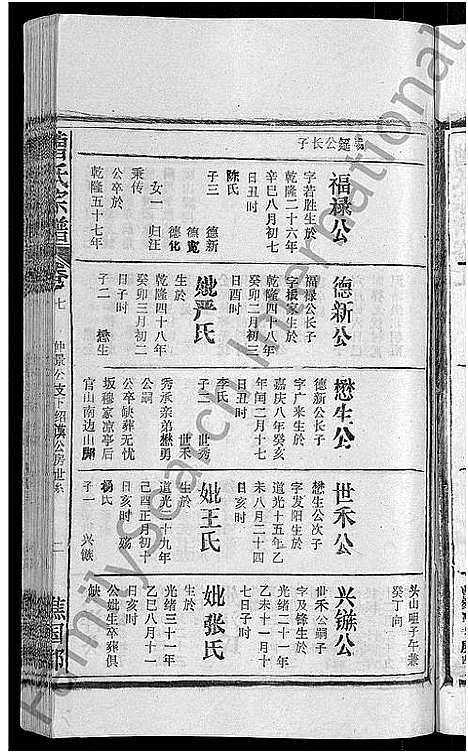 曹氏宗谱
卷
七
仲景公支下绍滇公房世系
二
谯国郡
福禄公
字若胜生於
乾隆二十六年
辛巳八月初七
日丑时
陈氏
子三 德新
德宽
德化
女一 归汪
秉传
公卒於
乾隆五十七年
德新公
福禄公长子
字振家生於
乾隆四十八年
癸卯二月初三
日酉时
妣严氏
生於
乾隆四十八年
癸卯三月初二
日子时
子二 懋生
懋生公
德新公长子
字广来生於
嘉庆八年癸亥
年闰二月十七
日丑时
李氏
子二 世秀
世禾
秀承亲弟懋勇
公嗣
公卒缺葬无忧
坂穆家凉亭后
官山南边山脚
世禾公
懋生公次子
字发阳生於
道光十五年乙
未八月二十四
日亥时
妣王氏
生於
道光二十九年
己酉正月初十
日亥时 殇
杨氏
子一 兴镞
头山咀子午兼
癸丁向
兴镞公
世禾公嗣子
字及锋生於
光绪二十一年
乙未十一月十
七日子时
妣张氏
生於
光绪三十一年
乙巳八月十一
日亥时
公妣生卒葬俱
缺
FamilySearch International